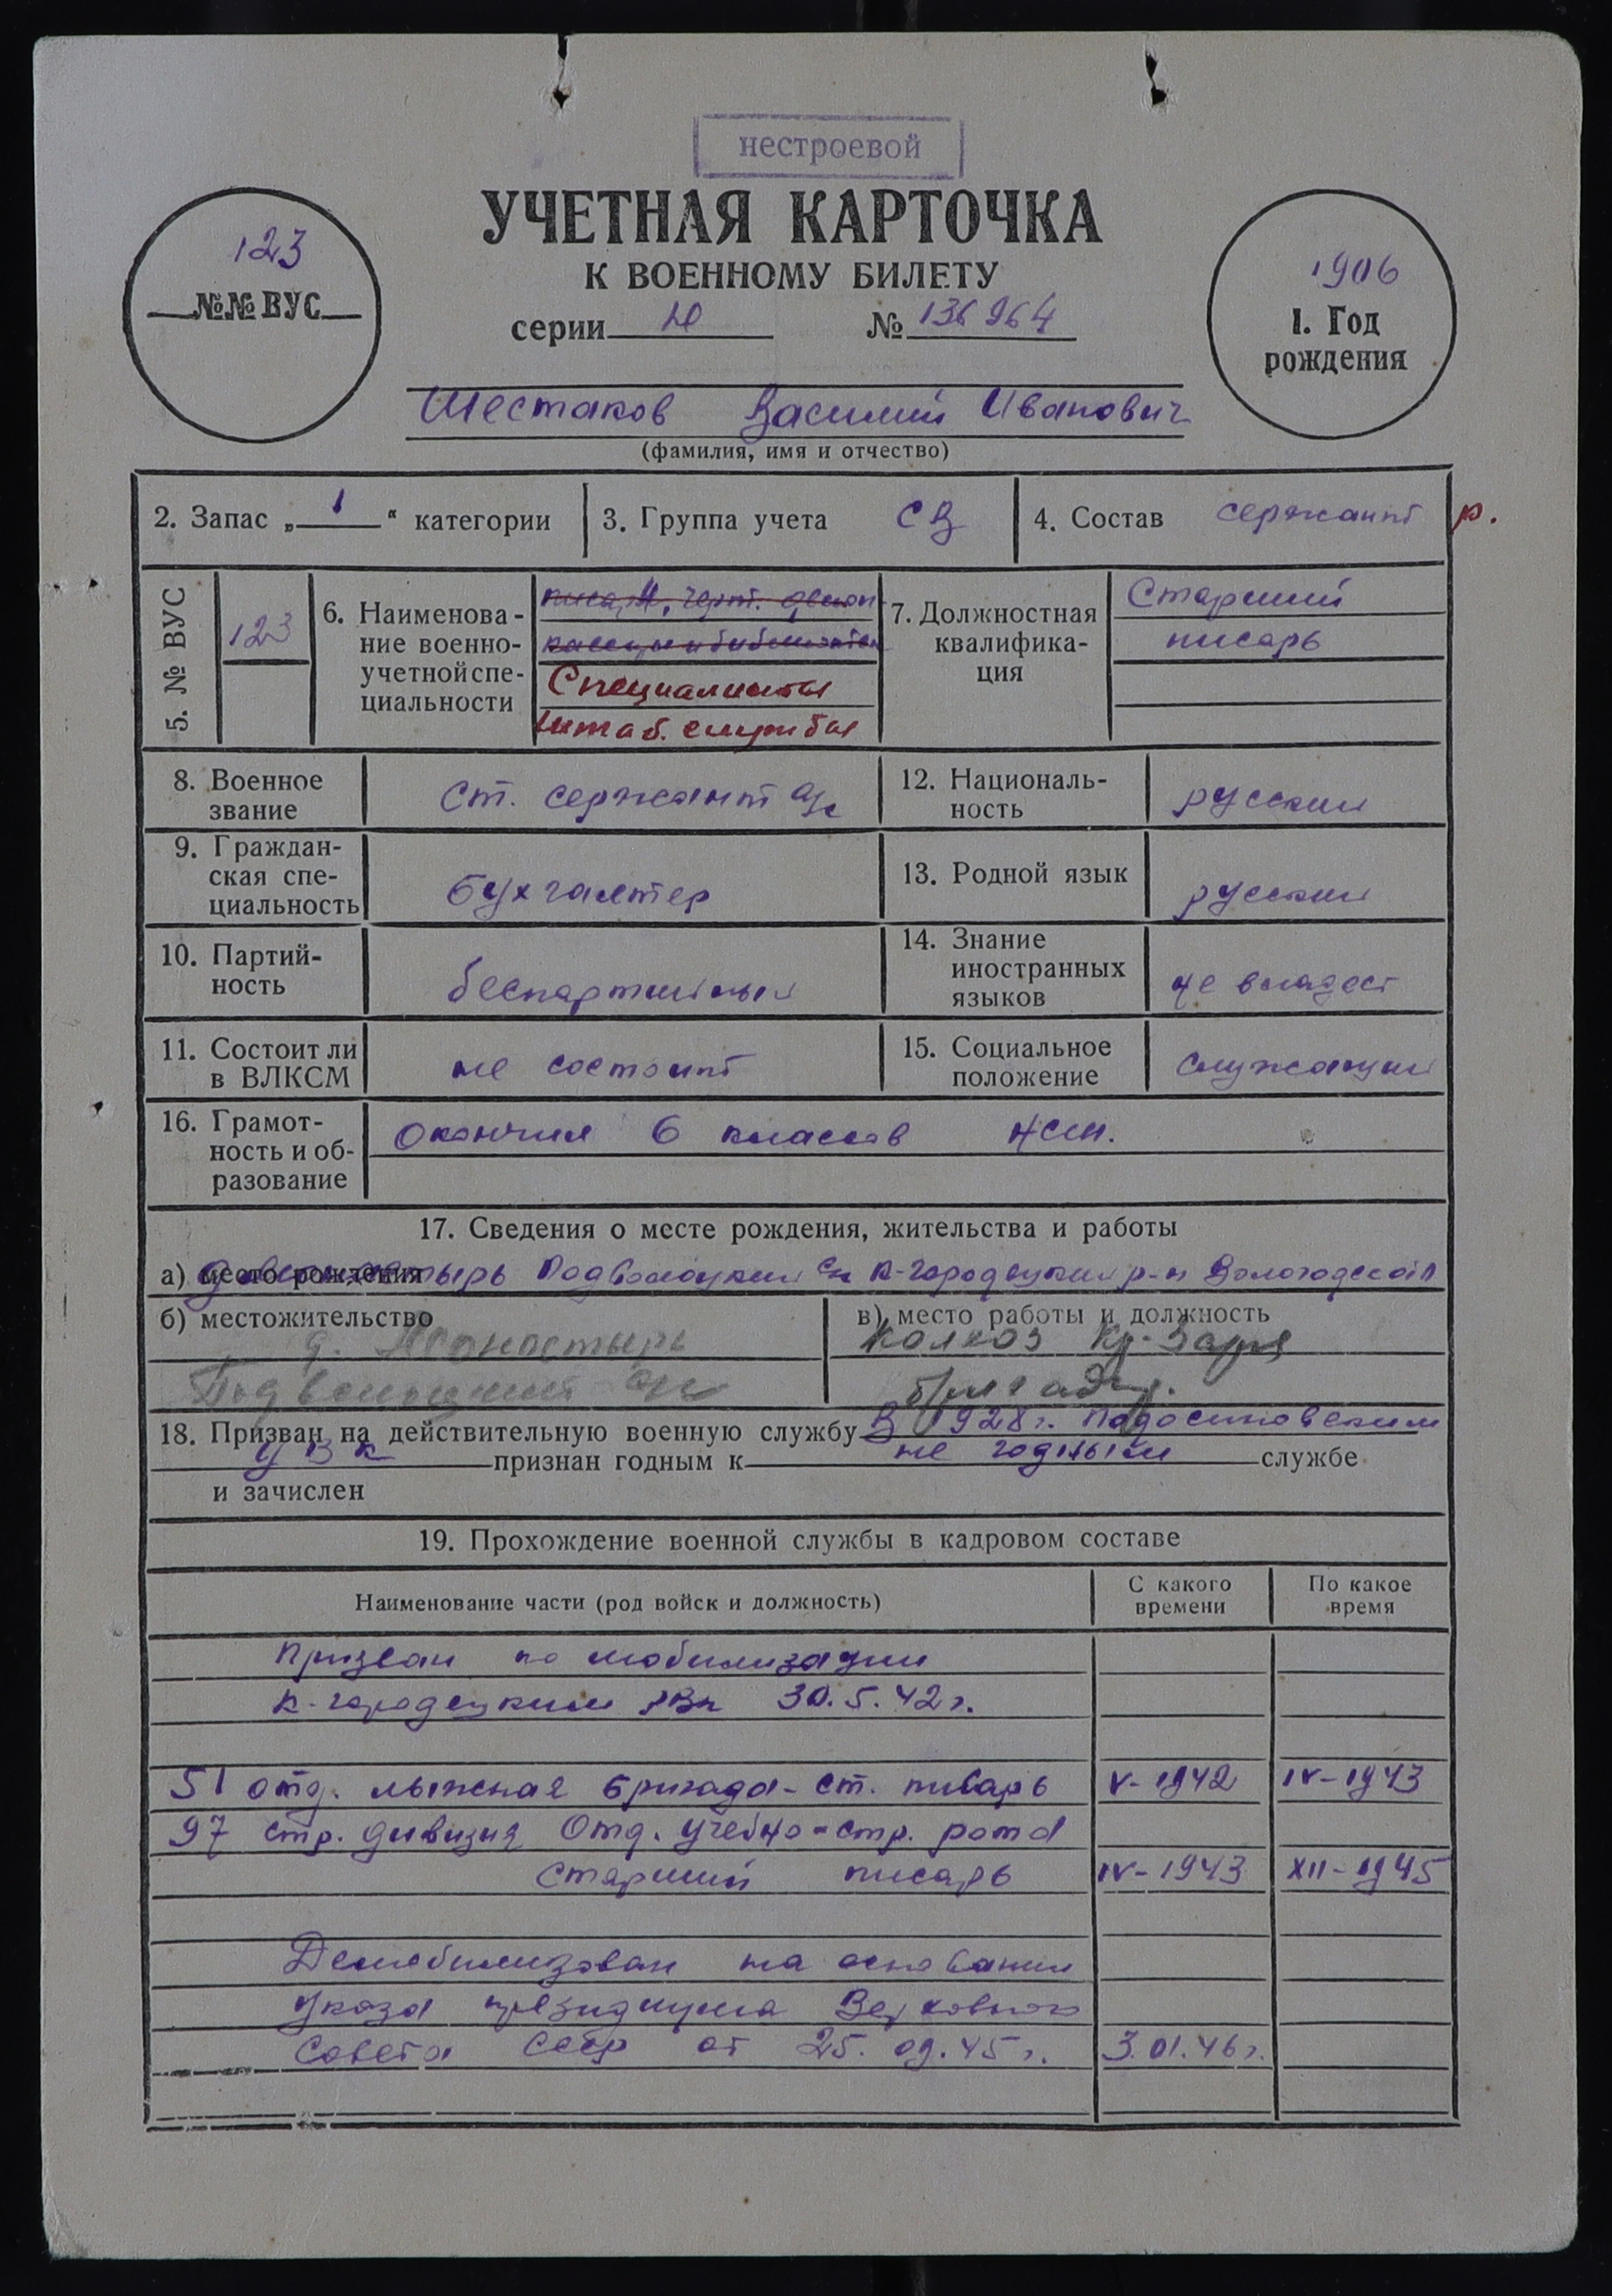 нестроевой
УЧЕТНАЯ КАРТОЧКА
К ВОЕННОМУ БИЛЕТУ
серии Ю № 136964
123
№№ ВУС
1906
1. Год
рождения
Шестаков Василий Иванович
(фамилия, имя и отчество)
2. Запас „ 1 “ категории
3. Группа учета СВ
4. Состав сержант р.
5. № ВУС
123
6. Наименова-
ние военно-
учетной спе-
циальности
писаря, черт.
Специалисты
штаб. службы
7. Должностная
квалифика-
ция
Старший
писарь
8. Военное
звание
ст. сержант а/с
12. Националь-
ность
русский
9. Граждан-
ская спе-
циальность
бухгалтер
13. Родной язык
русский
10. Партий-
ность
беспартийный
14. Знание
иностранных
языков
не владеет
11. Состоит ли
в ВЛКСМ
не состоит
15. Социальное
положение
служащий
16. Грамот-
ность и об-
разование
Окончил 6 классов НСШ.
17. Сведения о месте рождения, жительства и работы
а) место рождения Подволоцкий с/с К-Городецкий р-н Вологодской
б) местожительство
д. Монастырь
Подволоцкий с/с
в) место работы и должность
Колхоз Кр. Заря
бригадир.
18. Призван на действительную военную службу В 1928 г. Подосиновским
УВК признан годным к не годным службе
и зачислен
19. Прохождение военной службы в кадровом составе
Наименование части (род войск и должность)
С какого
времени
По какое
время
Призван по мобилизации
К-городецким РВк 30.5.42 г.
51 отд. лыжная бригада - ст. писарь V-1942 IV-1943
97 стр. дивизия Отд. учебно-стр. рота
старший писарь IV-1943 XII-1945
Демобилизован на основании
указа президиума Верховного
Совета СССР от 25.09.45 г. 3.01.46 г.